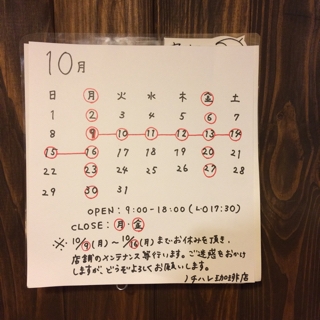 10月
日 月 火 水 木 金 土
1 2 3 4 5 6 7
8 9 10 11 12 13 14
15 16 17 18 19 20 21
22 23 24 25 26 27 28
29 30 31
OPEN：9:00-18:00（L.O17:30）
CLOSE：月・金
※10/9（月）〜10/16（月）までお休みを頂き、
店舗のメンテナンス等行います。ご迷惑をおかけ
しますが、どうぞよろしくお願いします。
ノチハレ珈琲店